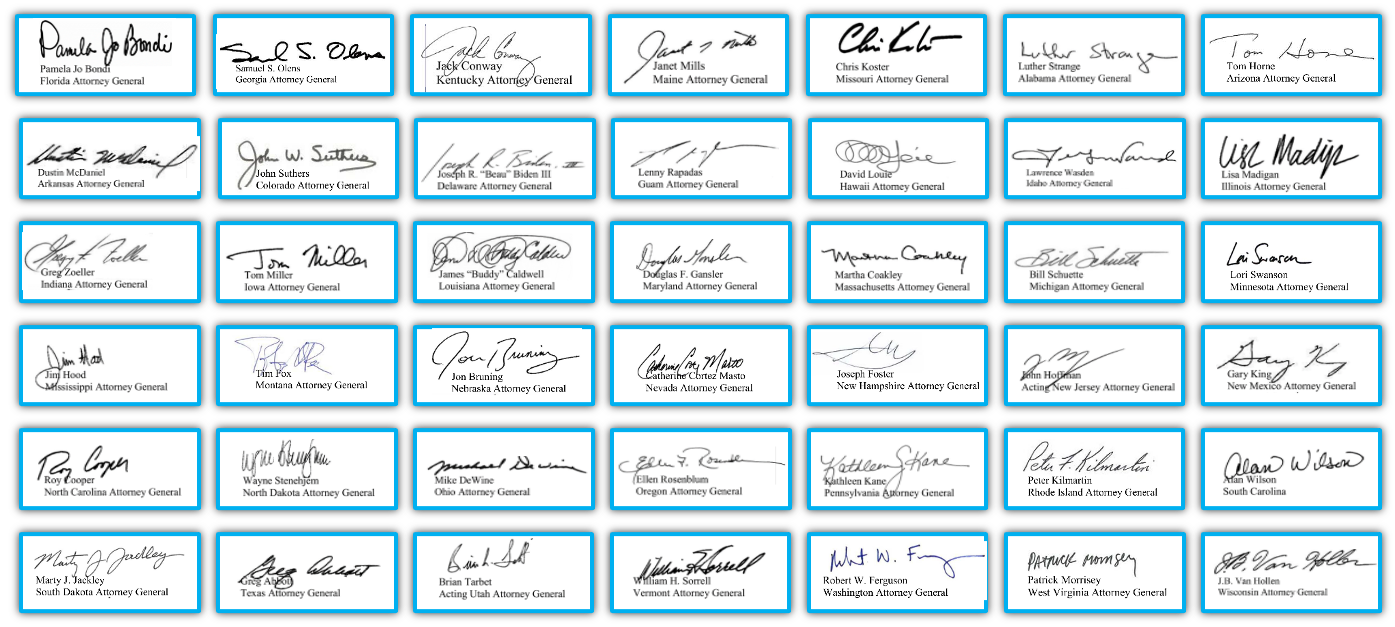 Pamela Jo Bondi
Pamela Jo Bondi
Florida Attorney General
Samuel S. Olens
Georgia Attorney General
Jack Conway
Jack Conway
Kentucky Attorney General
Janet T Mills
Janet Mills
Maine Attorney General
Chris Koster
Chris Koster
Missouri Attorney General
Luther Strange
Luther Strange
Alabama Attorney General
Tom Horne
Tom Horne
Arizona Attorney General
Dustin McDaniel
Dustin McDaniel
Arkansas Attorney General
John W. Suthers
John Suthers
Colorado Attorney General
Joseph R. Biden, III
Joseph R. “Beau” Biden III
Delaware Attorney General
Lenny Rapadas
Guam Attorney General
David Louie
Hawaii Attorney General
Lawrence Wasden
Idaho Attorney General
Lisa Madigan
Lisa Madigan
Illinois Attorney General
Greg F. Zoeller
Greg Zoeller
Indiana Attorney General
Tom Miller
Tom Miller
Iowa Attorney General
James “Buddy” Caldwell
Louisiana Attorney General
Douglas Gansler
Douglas F. Gansler
Maryland Attorney General
Martha Coakley
Martha Coakley
Massachusetts Attorney General
Bill Schuette
Bill Schuette
Michigan Attorney General
Lori Swanson
Lori Swanson
Minnesota Attorney General
Jim Hood
Jim Hood
Mississippi Attorney General
Tim Fox
Montana Attorney General
Jon Bruning
Jon Bruning
Nebraska Attorney General
Catherine Cortez Masto
Catherine Cortez Masto
Nevada Attorney General
Joseph Foster
New Hampshire Attorney General
John Hoffman
Acting New Jersey Attorney General
Gary King
Gary King
New Mexico Attorney General
Roy Cooper
Roy Cooper
North Carolina Attorney General
Wayne Stenehjem
Wayne Stenehjem
North Dakota Attorney General
Michael DeWine
Mike DeWine
Ohio Attorney General
Ellen F. Rosenblum
Ellen Rosenblum
Oregon Attorney General
Kathleen G. Kane
Kathleen Kane
Pennsylvania Attorney General
Peter F. Kilmartin
Peter Kilmartin
Rhode Island Attorney General
Alan Wilson
Alan Wilson
South Carolina
Marty J. Jackley
Marty J. Jackley
South Dakota Attorney General
Greg Abbott
Greg Abbott
Texas Attorney General
Brian Tarbet
Acting Utah Attorney General
William H. Sorrell
William H. Sorrell
Vermont Attorney General
Robert W. Ferguson
Robert W. Ferguson
Washington Attorney General
Patrick Morrisey
Patrick Morrisey
West Virginia Attorney General
J.B. Van Hollen
J.B. Van Hollen
Wisconsin Attorney General